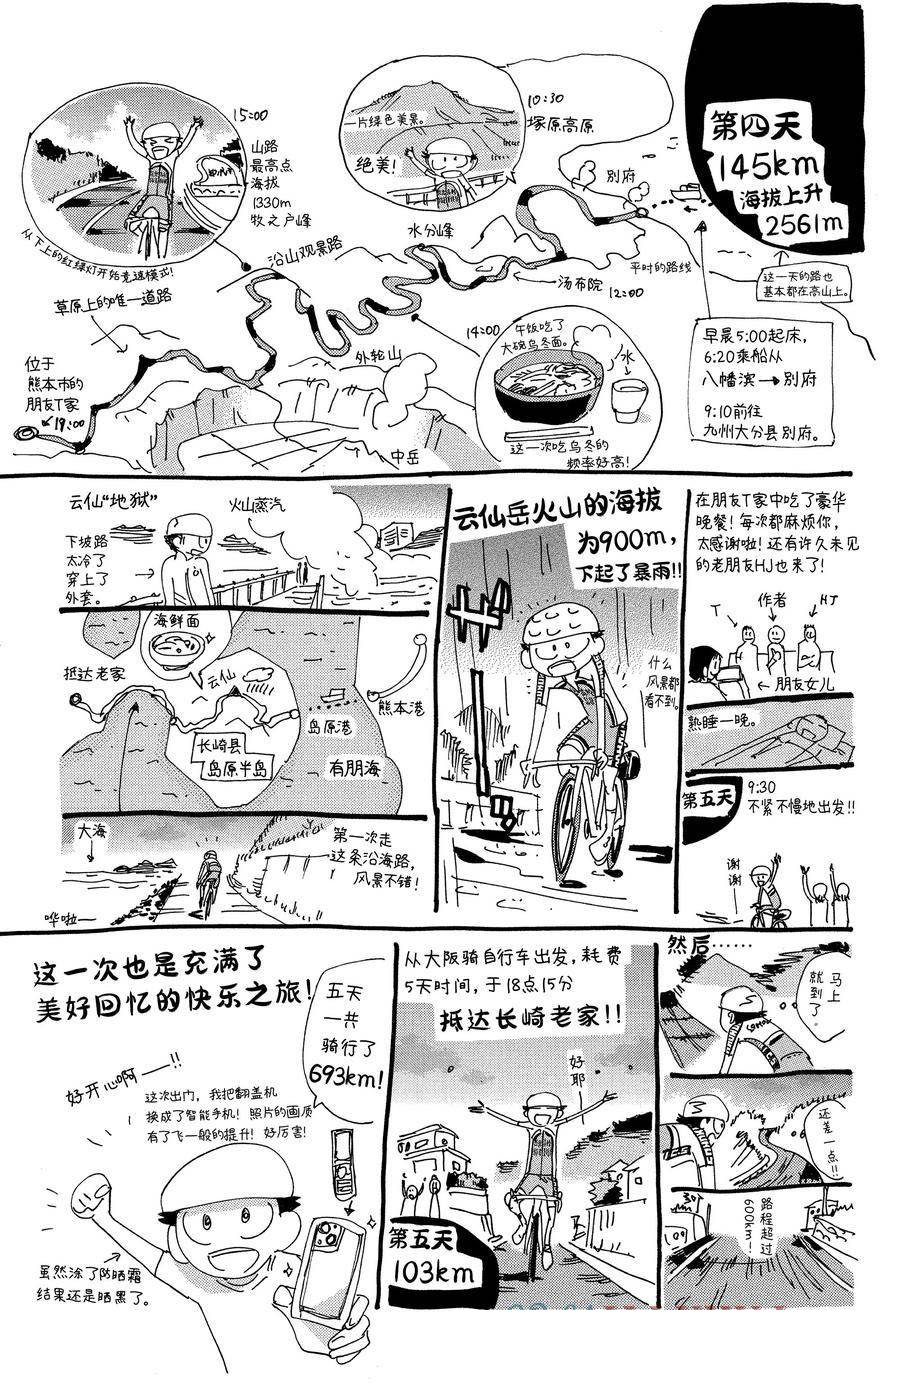 第四天
145km
海拔上升
2561m
这一天的路也
基本都在高山上。
早晨5:00起床，
6:20乘船从
八幡滨→别府
9:10前往
九州大分县别府。
别府
平时的路线
10:30
塚原高原
一片绿色美景。
绝美！
汤布院
12:00
水分峰
14:00
午饭吃了
大碗乌冬面。
水
这一次吃乌冬的
频率好高！
15:00
山路
最高点
海拔
1330m
牧之户峰
从下上的红绿灯开始竞速模式！
沿山观景路
草原上的唯一道路
外轮山
中岳
位于
熊本市的
朋友T家
19:00
在朋友T家中吃了豪华
晚餐！每次都麻烦你，
太感谢啦！还有许久未见
的老朋友HJ也来了！
T
作者
HJ
朋友女儿
熟睡一晚。
第五天
9:30
不紧不慢地出发！！
谢谢
云仙岳火山的海拔
为900m，
下起了暴雨！！
什么
风景都
看不到。
云仙“地狱”
火山蒸汽
下坡路
太冷了
穿上了
外套。
海鲜面
抵达老家
云仙
熊本港
岛原港
长崎县
岛原半岛
有明海
大海
第一次走
这条沿海路，
风景不错！
哗啦——
然后……
马上
就到了。
还差一点！！
路程超过
600km！
从大阪骑自行车出发，耗费
5天时间，于18点15分
抵达长崎老家！！
好耶
第五天
103km
这一次也是充满了
美好回忆的快乐之旅！
五天
一共
骑行了
693km！
好开心啊——！！
这次出门，我把翻盖机
换成了智能手机！照片的画质
有了飞一般的提升！好厉害！
虽然涂了防晒霜
结果还是晒黑了。